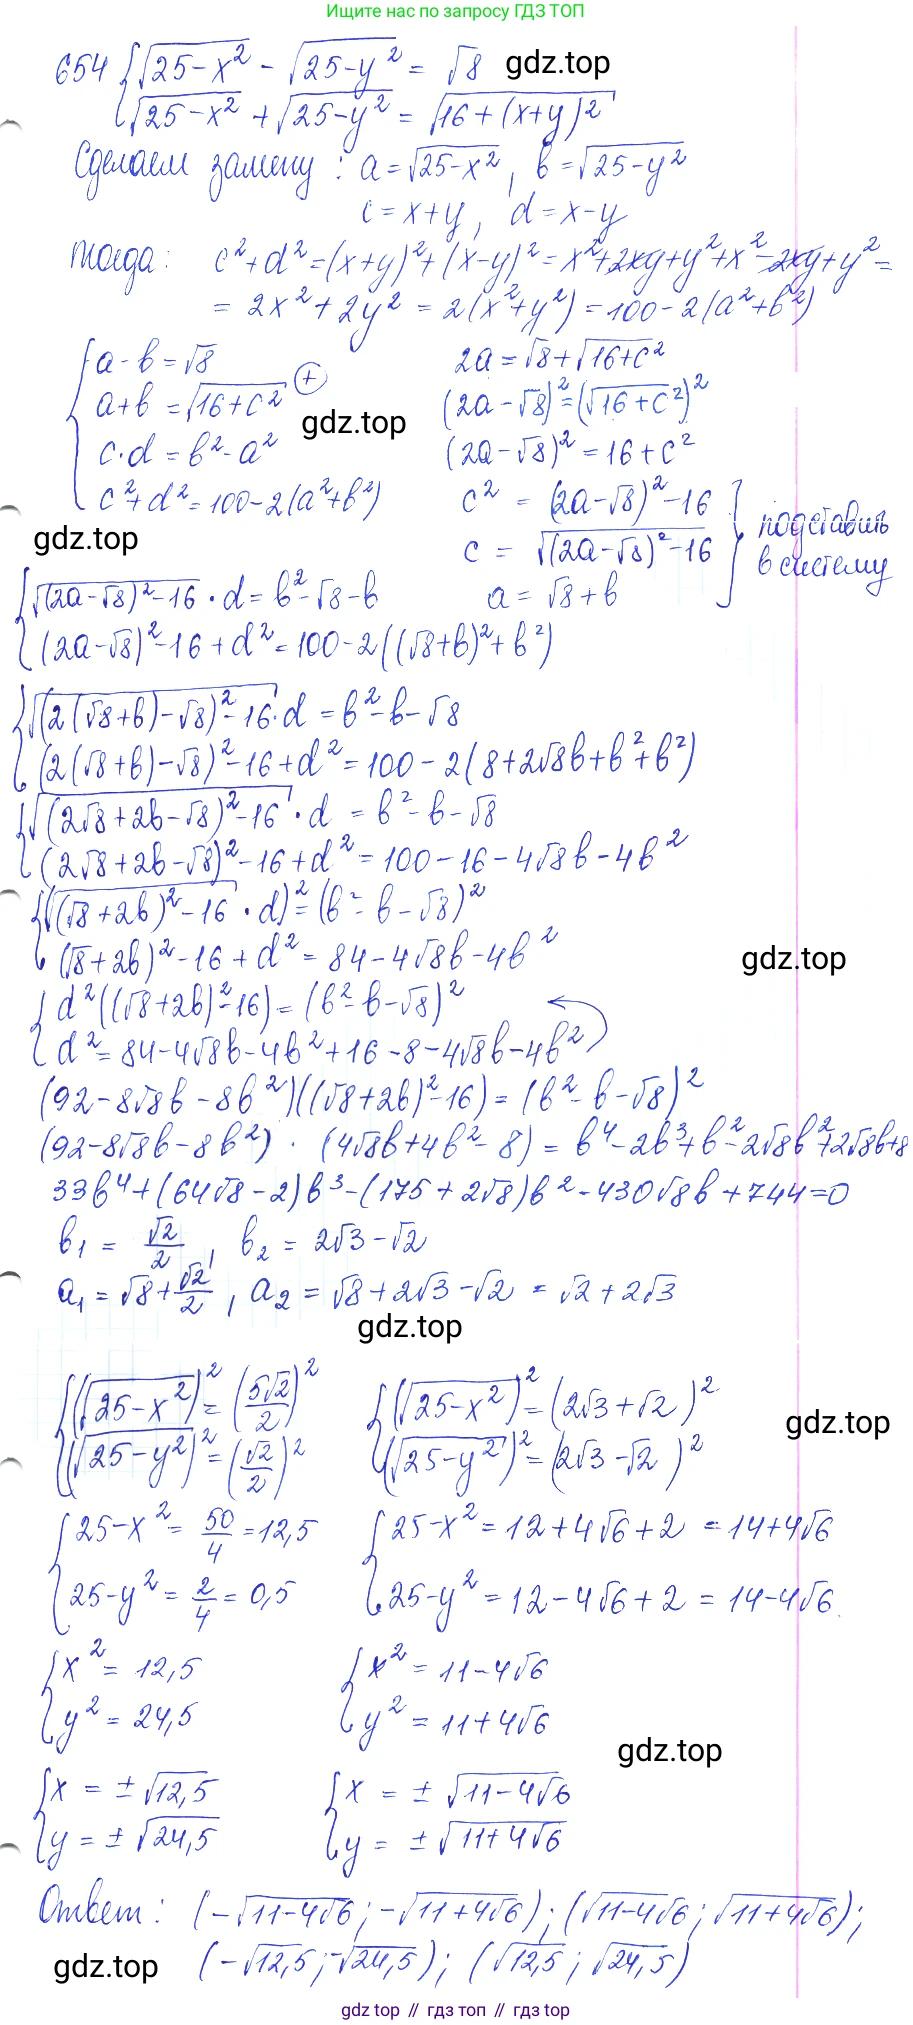 Ищите нас по запросу ГДЗ ТОП
654 { √(25-x²) - √(25-y²) = √8 gdz.top
√(25-x²) + √(25-y²) = √(16+(x+y)²)
Сделаем замену: a=√(25-x²), b=√(25-y²)
c=x+y, d=x-y
Тогда: c²+d²=(x+y)²+(x-y)²=x²+2xy+y²+x²-2xy+y²=
= 2x²+2y² = 2(x²+y²)=100-2(a²+b²)
{ a-b=√8 2a=√8+√(16+c²)
a+b=√(16+c²) (+) (2a-√8)²=(√(16+c²))²
gdz.top
c·d=b²-a² (2a-√8)²=16+c²
c²+d²=100-2(a²+b²) c² = (2a-√8)²-16 } подставить
gdz.top c = √((2a-√8)²-16) в систему
{ √((2a-√8)²-16)·d=b²-√8-b a=√8+b
(2a-√8)²-16+d²=100-2((√8+b)²+b²)
{ √((2(√8+b)-√8)²-16)·d=b²-b-√8
(2(√8+b)-√8)²-16+d²=100-2(8+2√8b+b²+b²)
{ √((2√8+2b-√8)²-16)·d=b²-b-√8
(2√8+2b-√8)²-16+d²=100-16-4√8b-4b²
{ (√((√8+2b)²-16)·d)²=(b²-b-√8)²
(√8+2b)²-16+d²=84-4√8b-4b² gdz.top
{ d²((√8+2b)²-16)=(b²-b-√8)²
d²=84-4√8b-4b²+16-8-4√8b-4b²
(92-8√8b-8b²)((√8+2b)²-16)=(b²-b-√8)²
(92-8√8b-8b²)·(4√8b+4b²-8)=b⁴-2b³+b²-2√8b²+2√8b+8
33b⁴+(64√8-2)b³-(175+2√8)b²-430√8b+744=0
b₁=√2/2, b₂=2√3-√2
a₁=√8+√2/2, a₂=√8+2√3-√2=√2+2√3
gdz.top
{ (√(25-x²))²=(5√2/2)² { (√(25-x²))²=(2√3+√2)²
gdz.top
(√(25-y²))²=(√2/2)² (√(25-y²))²=(2√3-√2)²
{ 25-x²=50/4=12,5 { 25-x²=12+4√6+2=14+4√6
25-y²=2/4=0,5 25-y²=12-4√6+2=14-4√6
{ x²=12,5 { x²=11-4√6
y²=24,5 y²=11+4√6
gdz.top
{ x=±√12,5 { x=±√(11-4√6)
y=±√24,5 y=±√(11+4√6)
Ответ: (-√(11-4√6); -√(11+4√6)); (√(11-4√6); √(11+4√6));
gdz.top (-√12,5; -√24,5); (√12,5; √24,5)
gdz top // гдз топ // gdz top